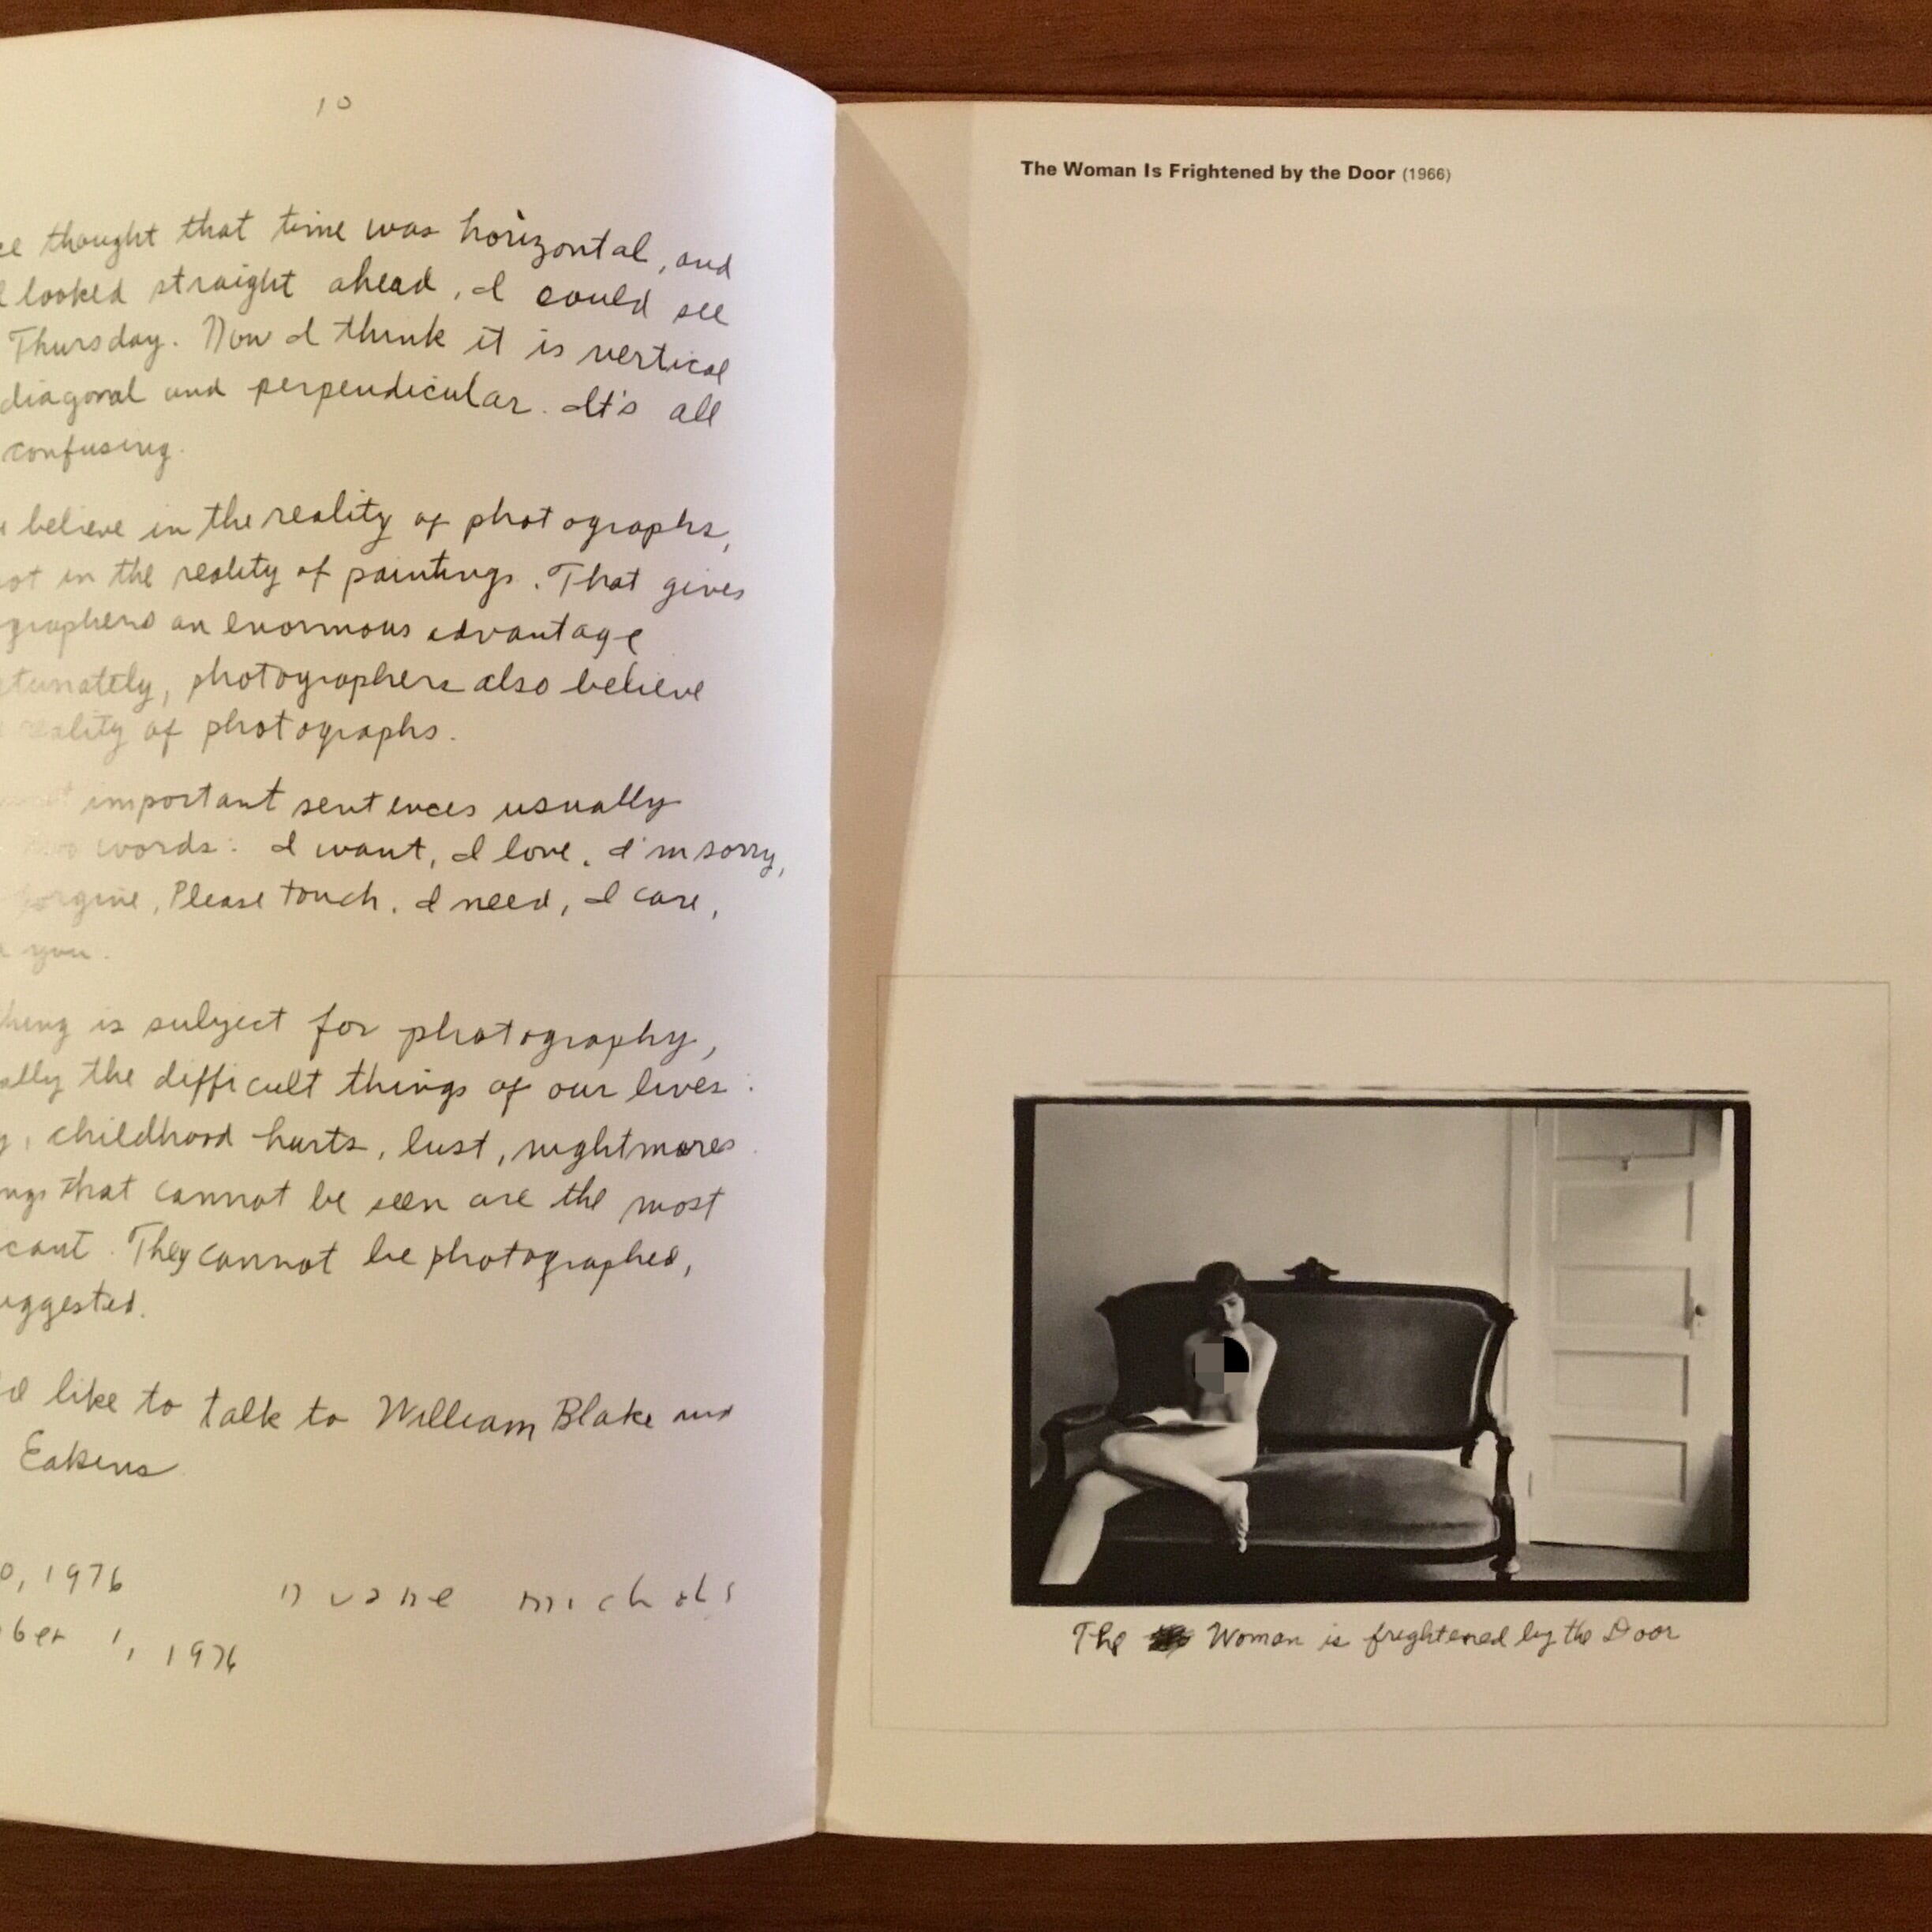 10
thought that time was horizontal, and
looked straight ahead, I could see
Thursday. Now I think it is vertical
diagonal and perpendicular. It's all
confusing.
believe in the reality of photographs,
ot in the reality of paintings. That gives
graphers an enormous advantage
tunately, photographers also believe
reality of photographs.
important sentences usually
two words: I want, I love, I'm sorry,
forgive, Please touch, I need, I care,
you.
hing is subject for photography,
ally the difficult things of our lives:
y, childhood hurts, lust, nightmares
ngs that cannot be seen are the most
icant. They cannot be photographed,
uggested.
like to talk to William Blake and
Eakins
0, 1976
ber 1, 1976
Duane Michals
The Woman Is Frightened by the Door (1966)
The Woman is frightened by the Door